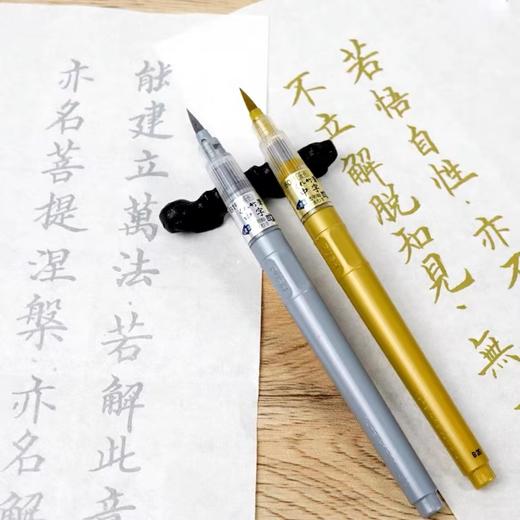 若悟自性·亦不
不立解脫知見·無
能建立萬法·若解此意
亦名菩提涅槃·亦名解